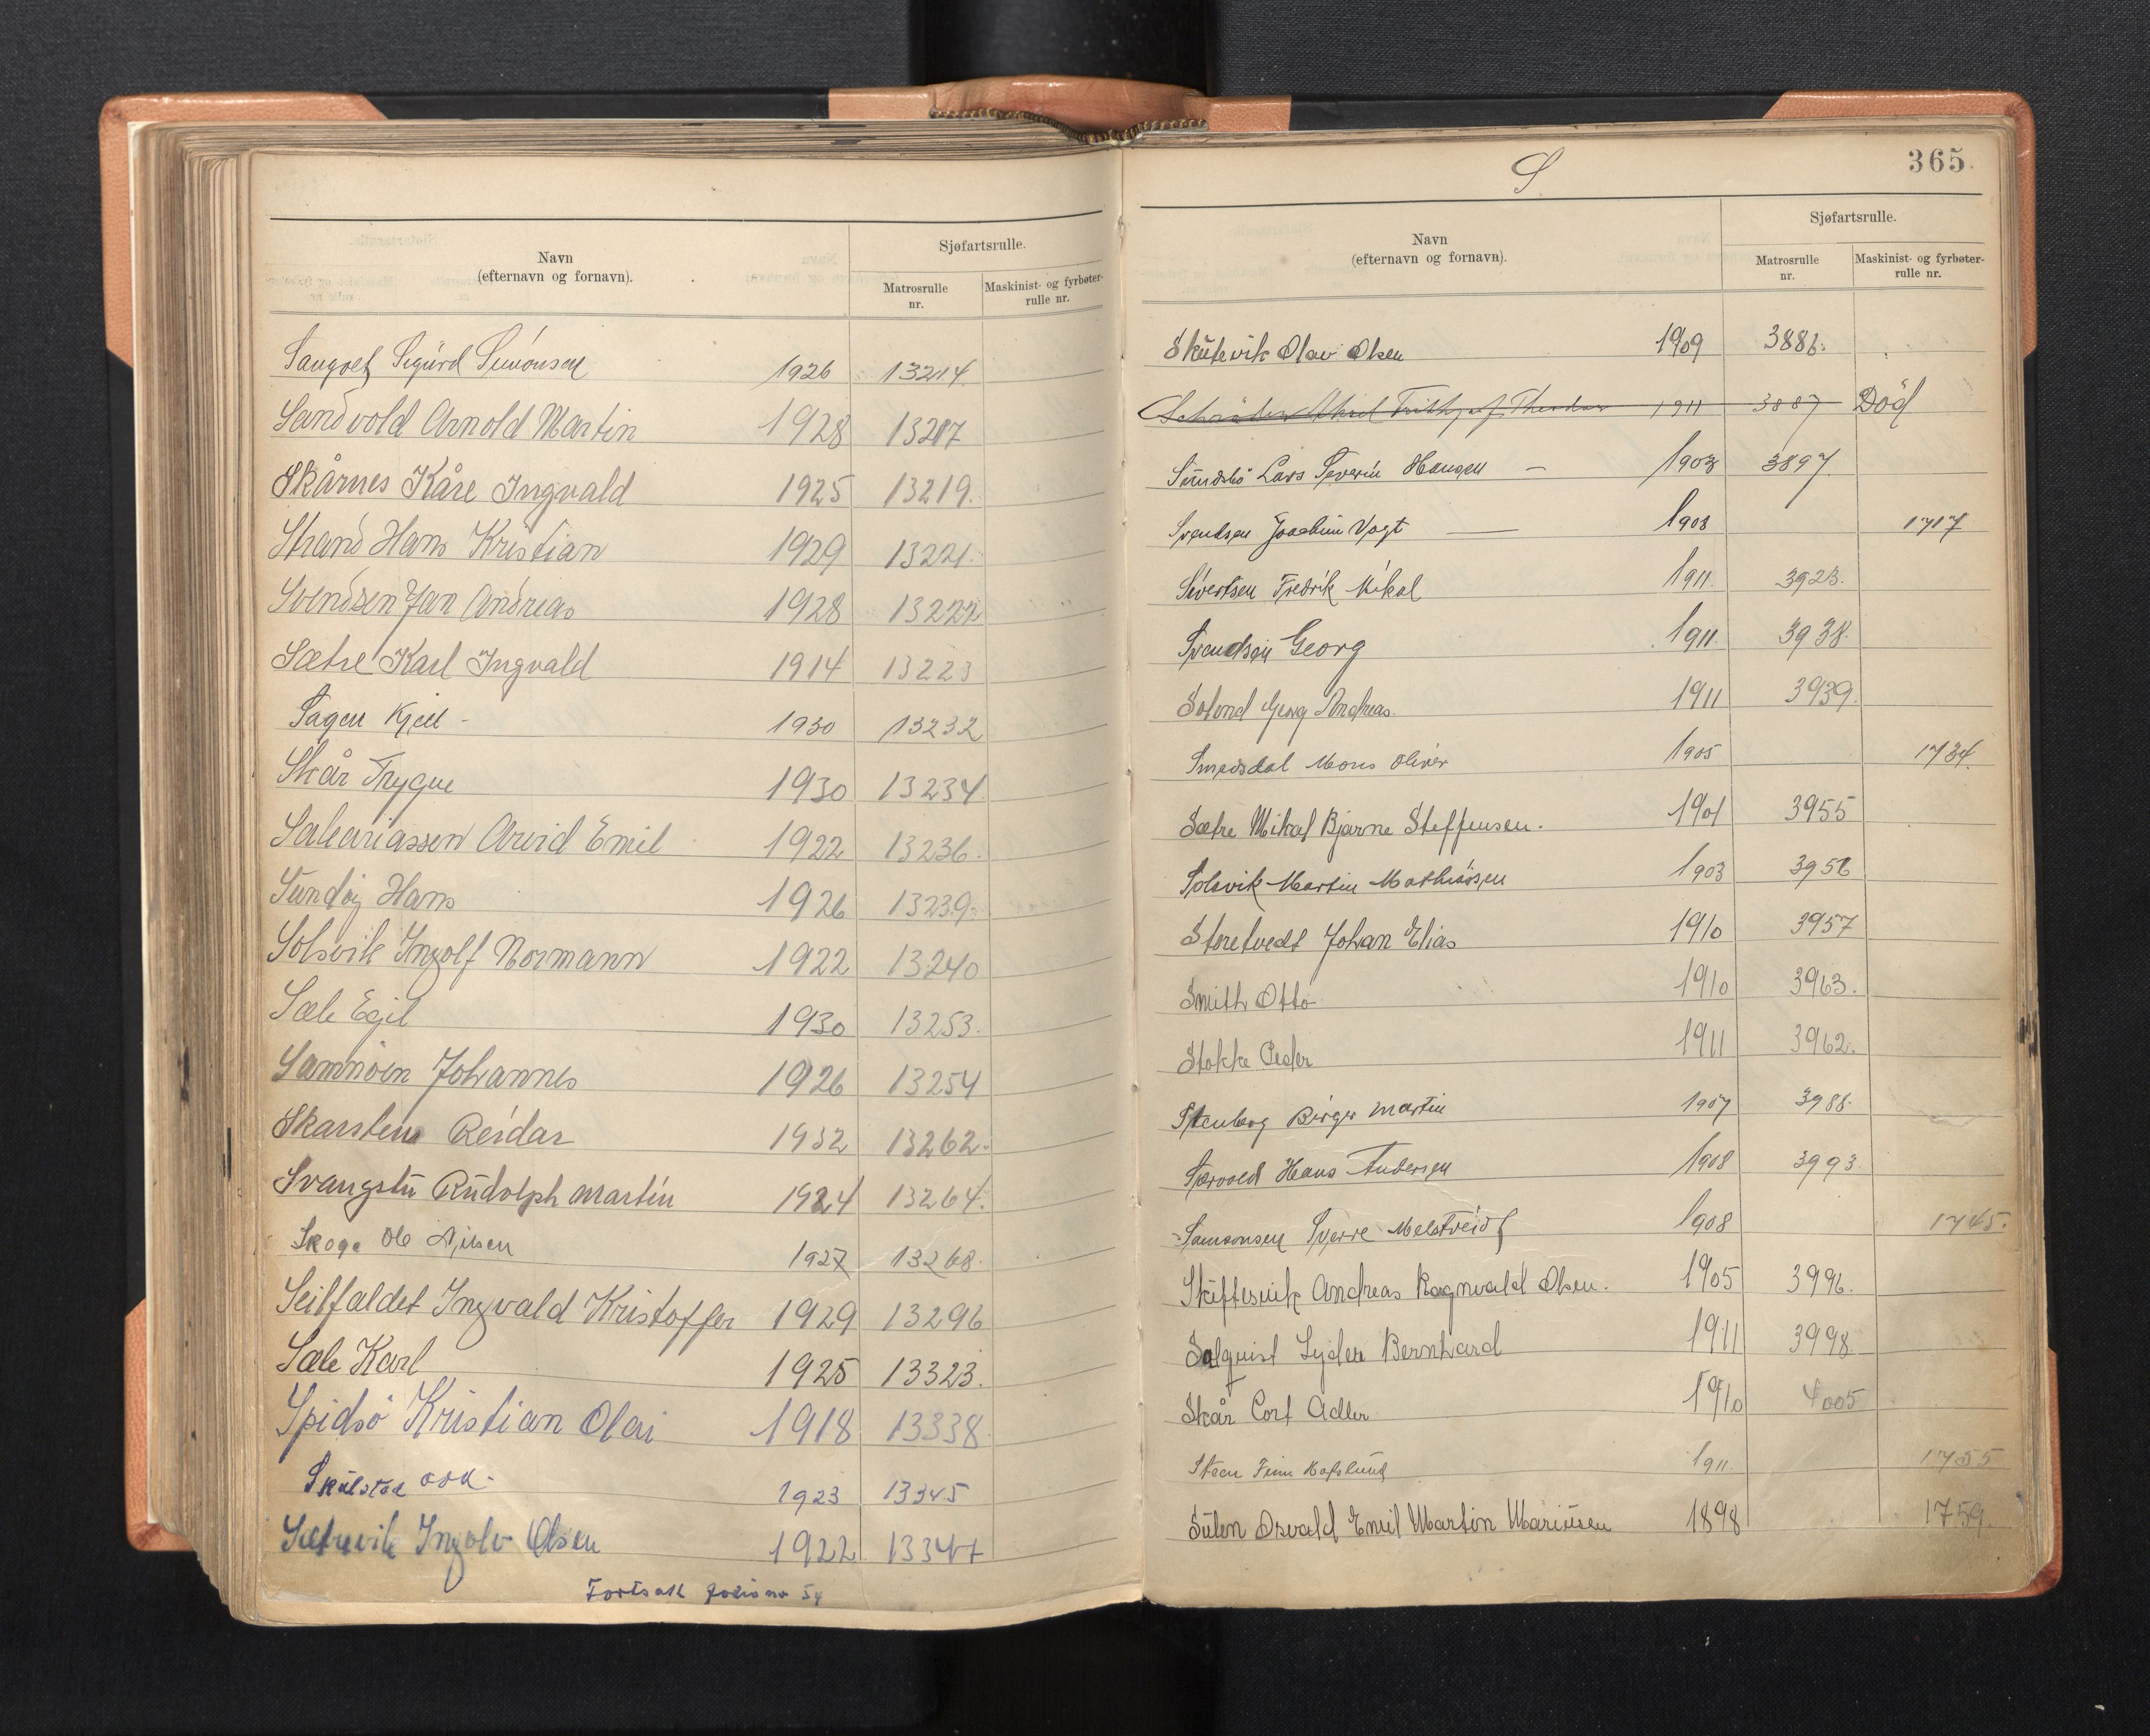 Navn
(efternavn og fornavn).
Sjøfartsrulle.
Matrosrulle
nr.
Maskinist- og fyrbøter-
rulle nr.
Sigurd Simonsen 1926 13214
Sandvold Arnold Martin 1928 13217
Skårnes Kåre Ingvald 1925 13219.
Strand Hans Kristian 1929 13221.
Svendsen Jan Andreas 1928 13222
Sætre Karl Ingvald 1914 13223
Sagen Kjell - 1930 13232
Skår Trygve 1930 13234.
Sakariassen Arvid Emil 1922 13236.
Sundøy Hans 1926 13239.
Solsvik Ingolf Normann 1922 13240
Sæle Egil 1930 13253.
Samnøen Johannes 1926 13254
Skarstein Reidar 1932 13262.
Svangstu Rudolph Martin 1924 13264.
Skoge Ole Nilsen 1927 13268.
Seilfaldet Ingvald Kristoffer 1929 13296
Sæle Karl 1925 13323.
Spidsö Kristian Olai 1918 13338
Skulstad Odd - 1923 13345
Sætrevik Ingolv Olsen 1922 13347
Fortsatt folio no 54
S
365.
Navn
(efternavn og fornavn).
Sjøfartsrulle.
Matrosrulle
nr.
Maskinist- og fyrbøter-
rulle nr.
Skutevik Olav Olsen 1909 3886.
Schrøder Aksel Theodor 1911 3887 Död
Sundsbö Lars Severin Hansen - 1903 3897.
Svendsen Joachim Vogt — 1908 1717
Sivertsen Fredrik Mikal 1911. 3923.
Svendsen Georg 1911. 3938.
Solund Georg Andreas. 1911 3939.
Smedsdal Mons Oliver 1905 1734.
Sætre Mikal Bjarne Steffensen. 1901 3955
Solsvik Martin Mathiassen 1903 3956
Storetvedt Johan Elias 1910 3957
Smith Otto 1910 3963.
Stokke Peder 1911 3962.
Stenberg Birger Martin 1907 3988.
Særvold Hans Andersen 1908 3993.
Samsonsen Sverre Meltveidt 1908 1745.
Skiftesvik Andreas Ragnvald Olsen. 1905 3996.
Salquist Lyder Bernhard 1911 3998
Skår Cort Adler 1910 4005
Steen Finn Hafslund 1911. 1755
Sulen Osvald Emil Martin Mariusen 1898 1759.